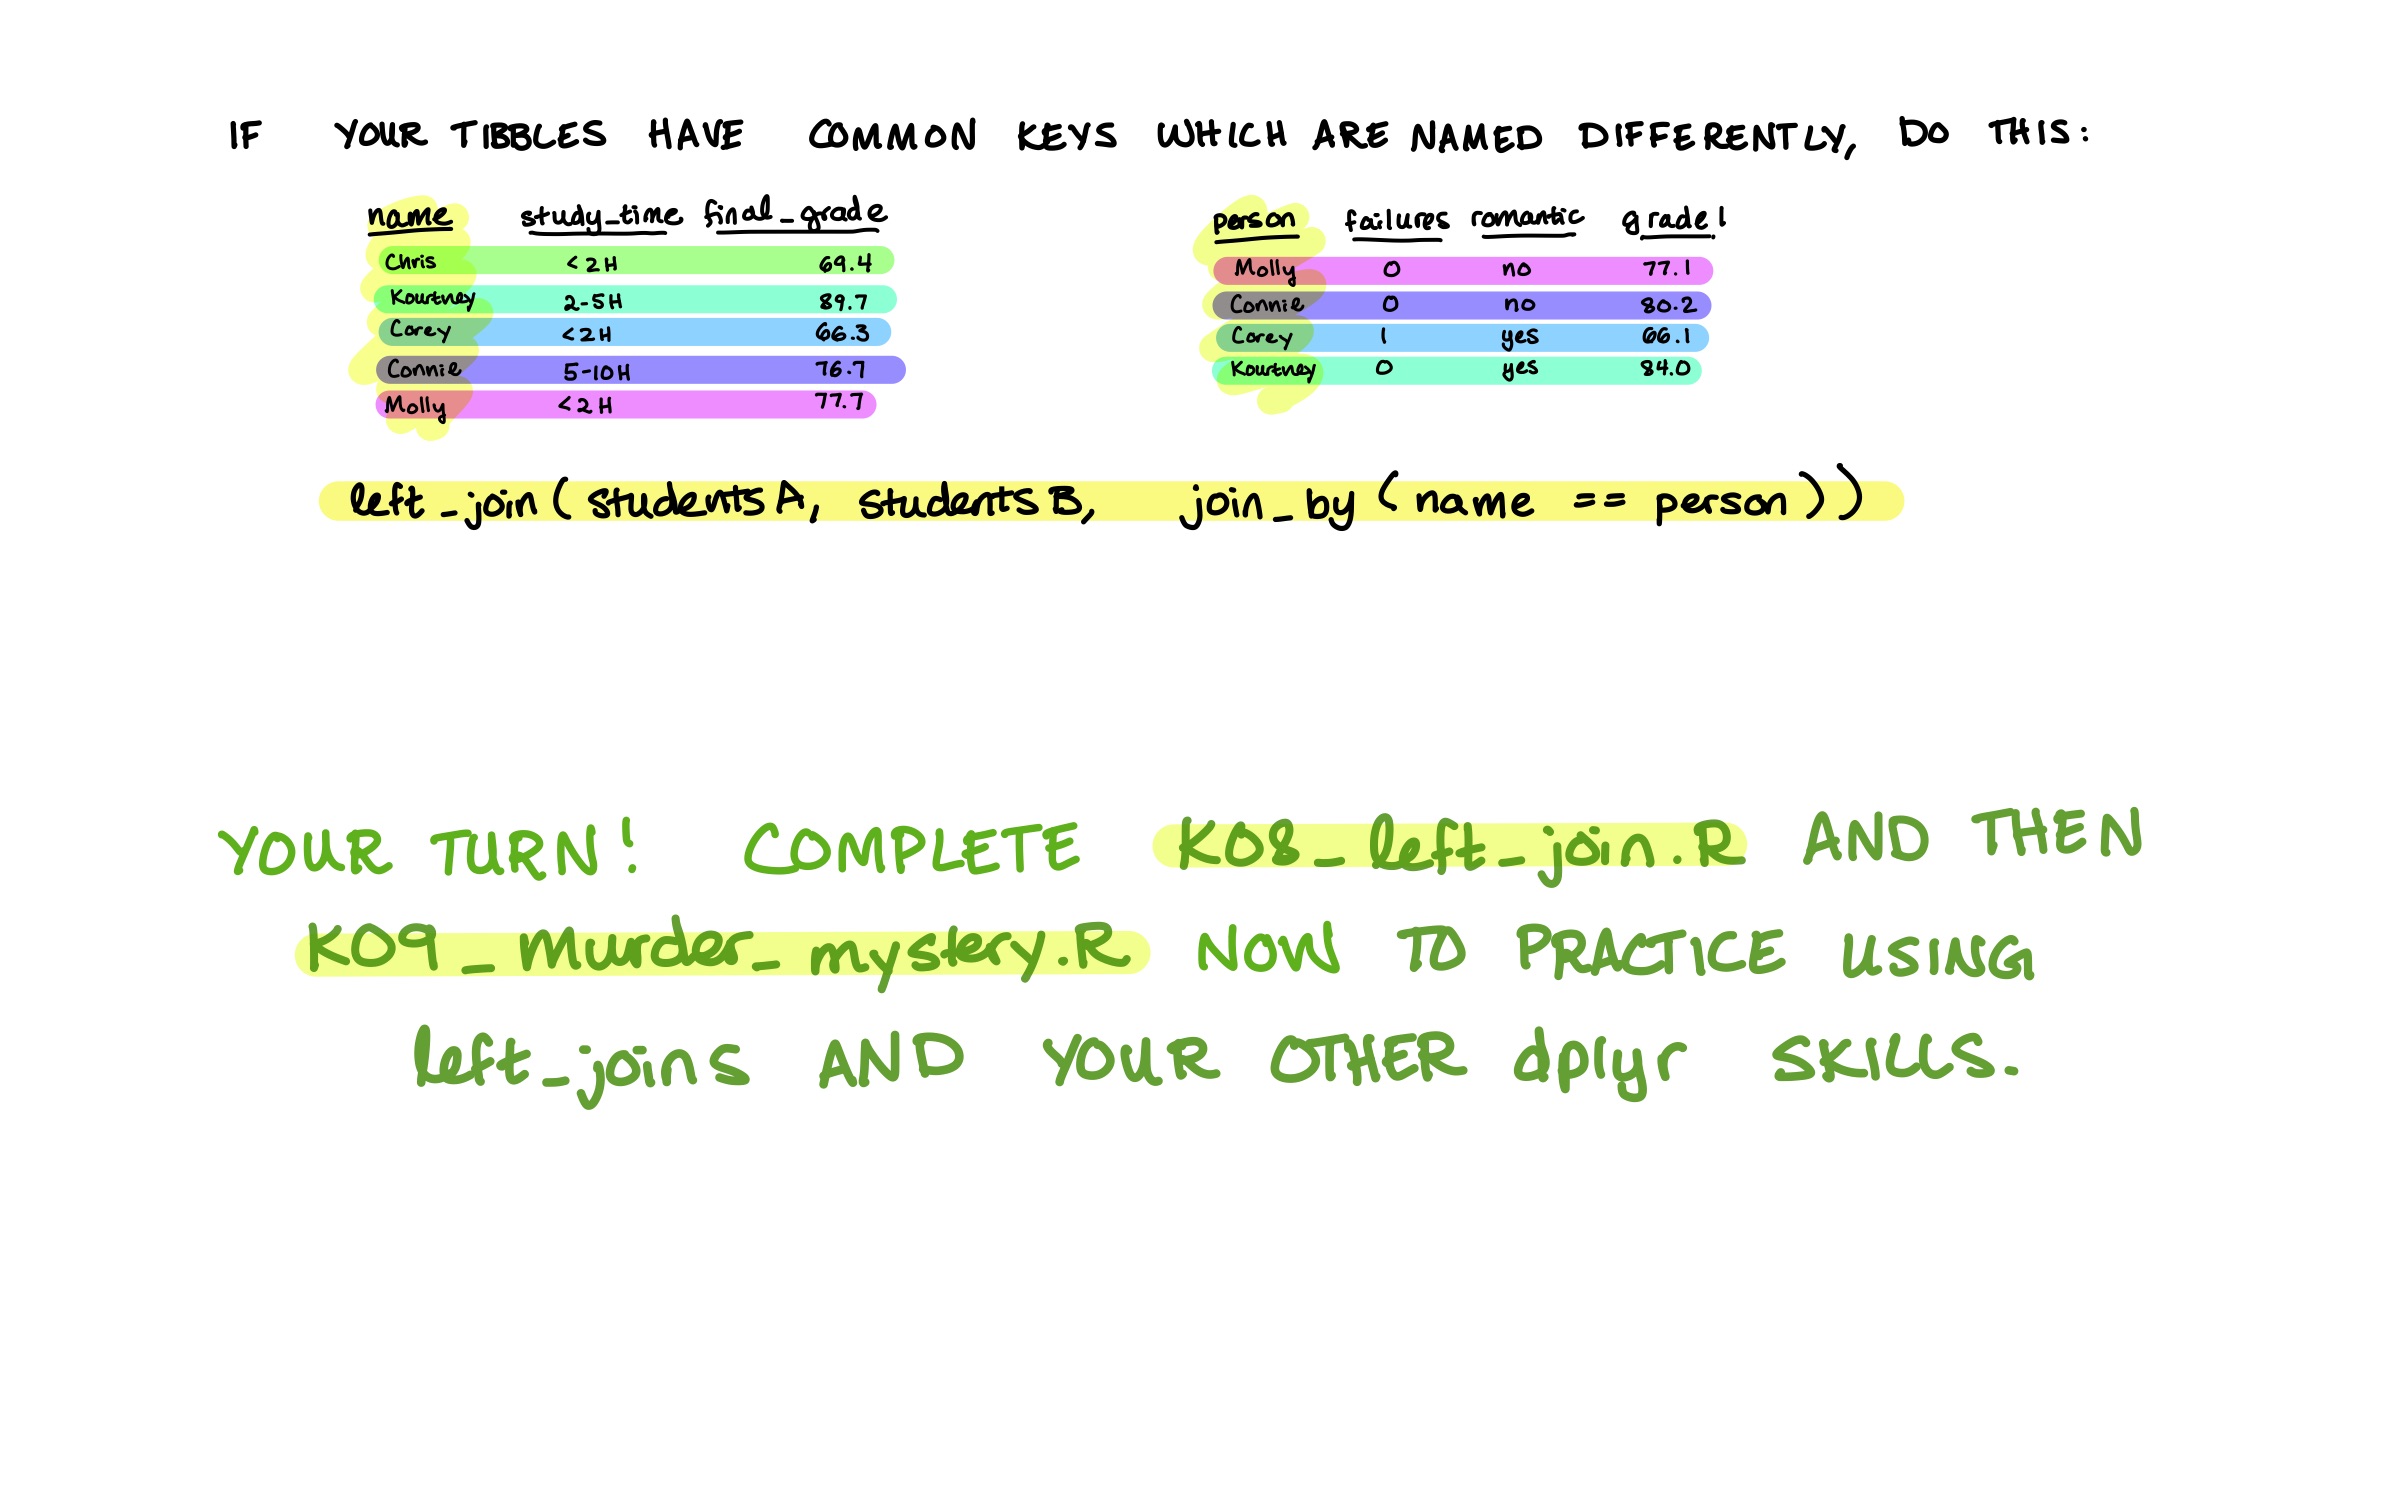 IF YOUR TIBBLES HAVE COMMON KEYS WHICH ARE NAMED DIFFERENTLY, DO THIS:
name study_time final_grade
Chris <2H 69.4
Kourtney 2-5H 89.7
Corey <2H 66.3
Connie 5-10H 76.7
Molly <2H 77.7
person failures romantic grade1
Molly 0 no 77.1
Connie 0 no 80.2
Corey 1 yes 66.1
Kourtney 0 yes 84.0
left_join(studentsA, studentsB, join_by(name == person))
YOUR TURN! COMPLETE K08_left_join.R AND THEN
K09_murder_mystery.R NOW TO PRACTICE USING
left_joins AND YOUR OTHER dplyr SKILLS.